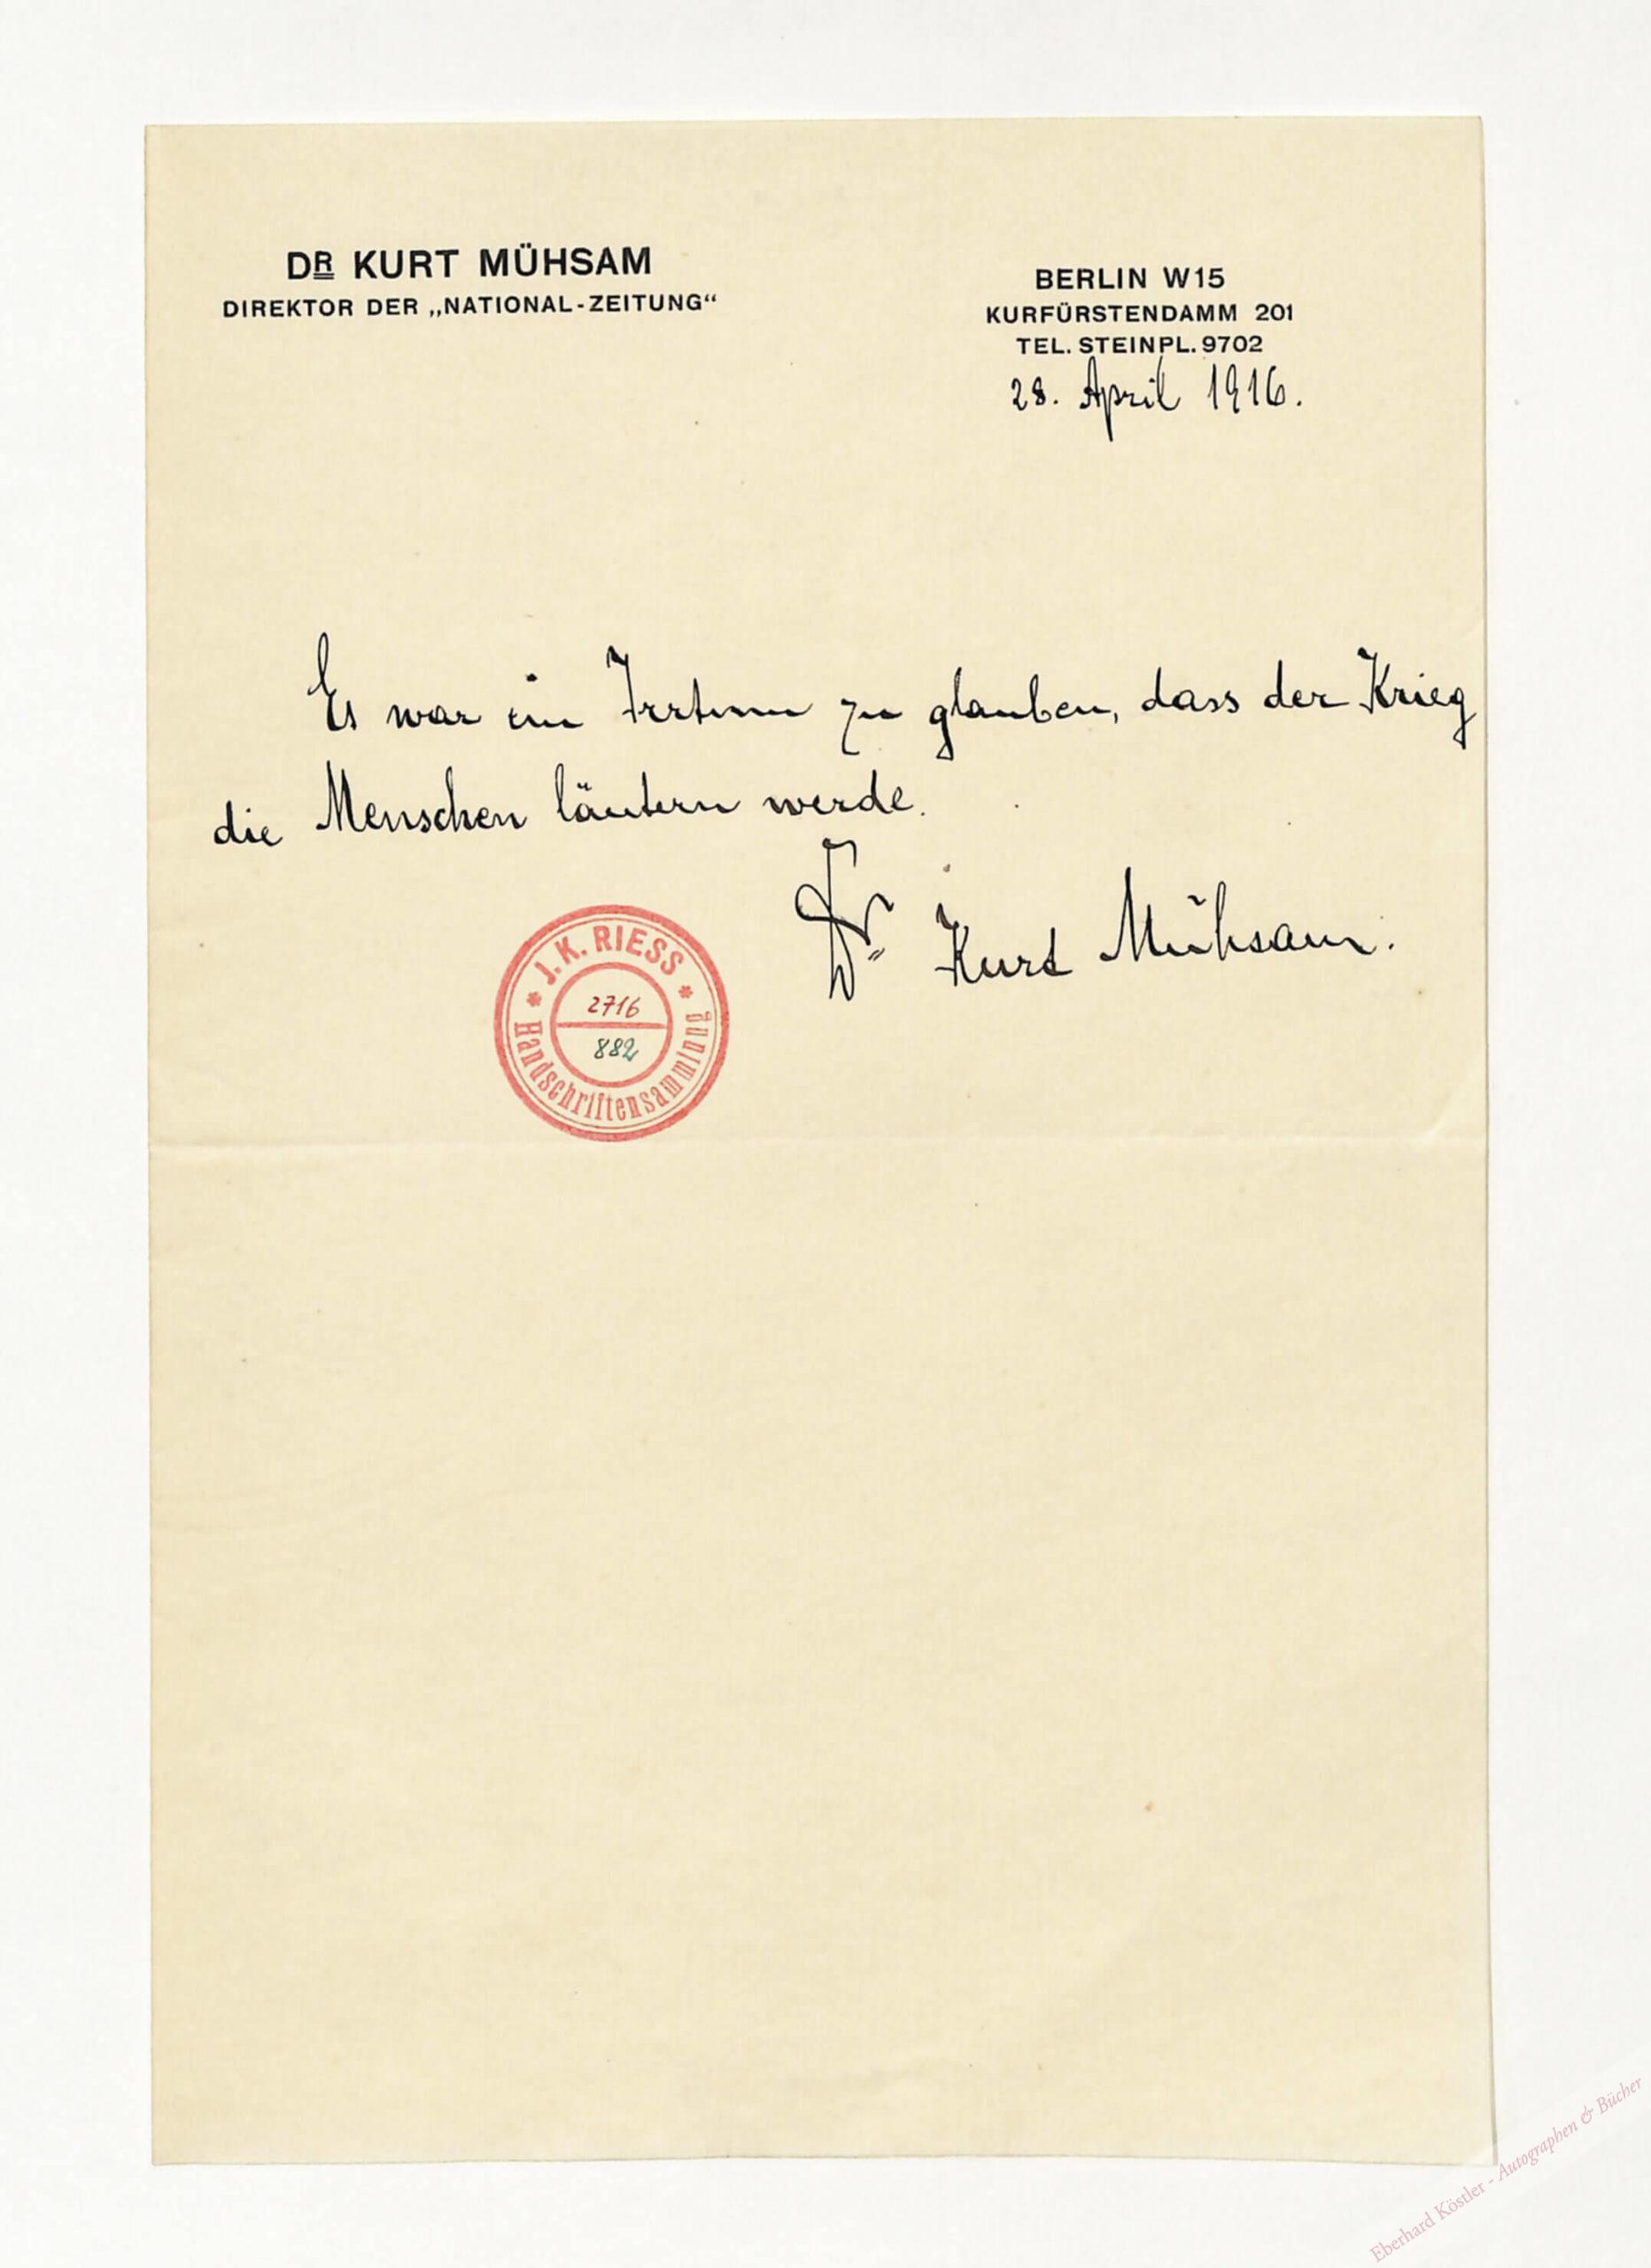 DR KURT MÜHSAM
DIREKTOR DER „NATIONAL-ZEITUNG“
BERLIN W15
KURFÜRSTENDAMM 201
TEL. STEINPL. 9702
28. April 1916.
Es war ein Irrtum zu glauben, dass der Krieg
die Menschen läutern werde.
Dr. Kurt Mühsam.
* J. K. RIESS *
2716
882
Handschriftensammlung
Eberhard Köstler - Autographen & Bücher